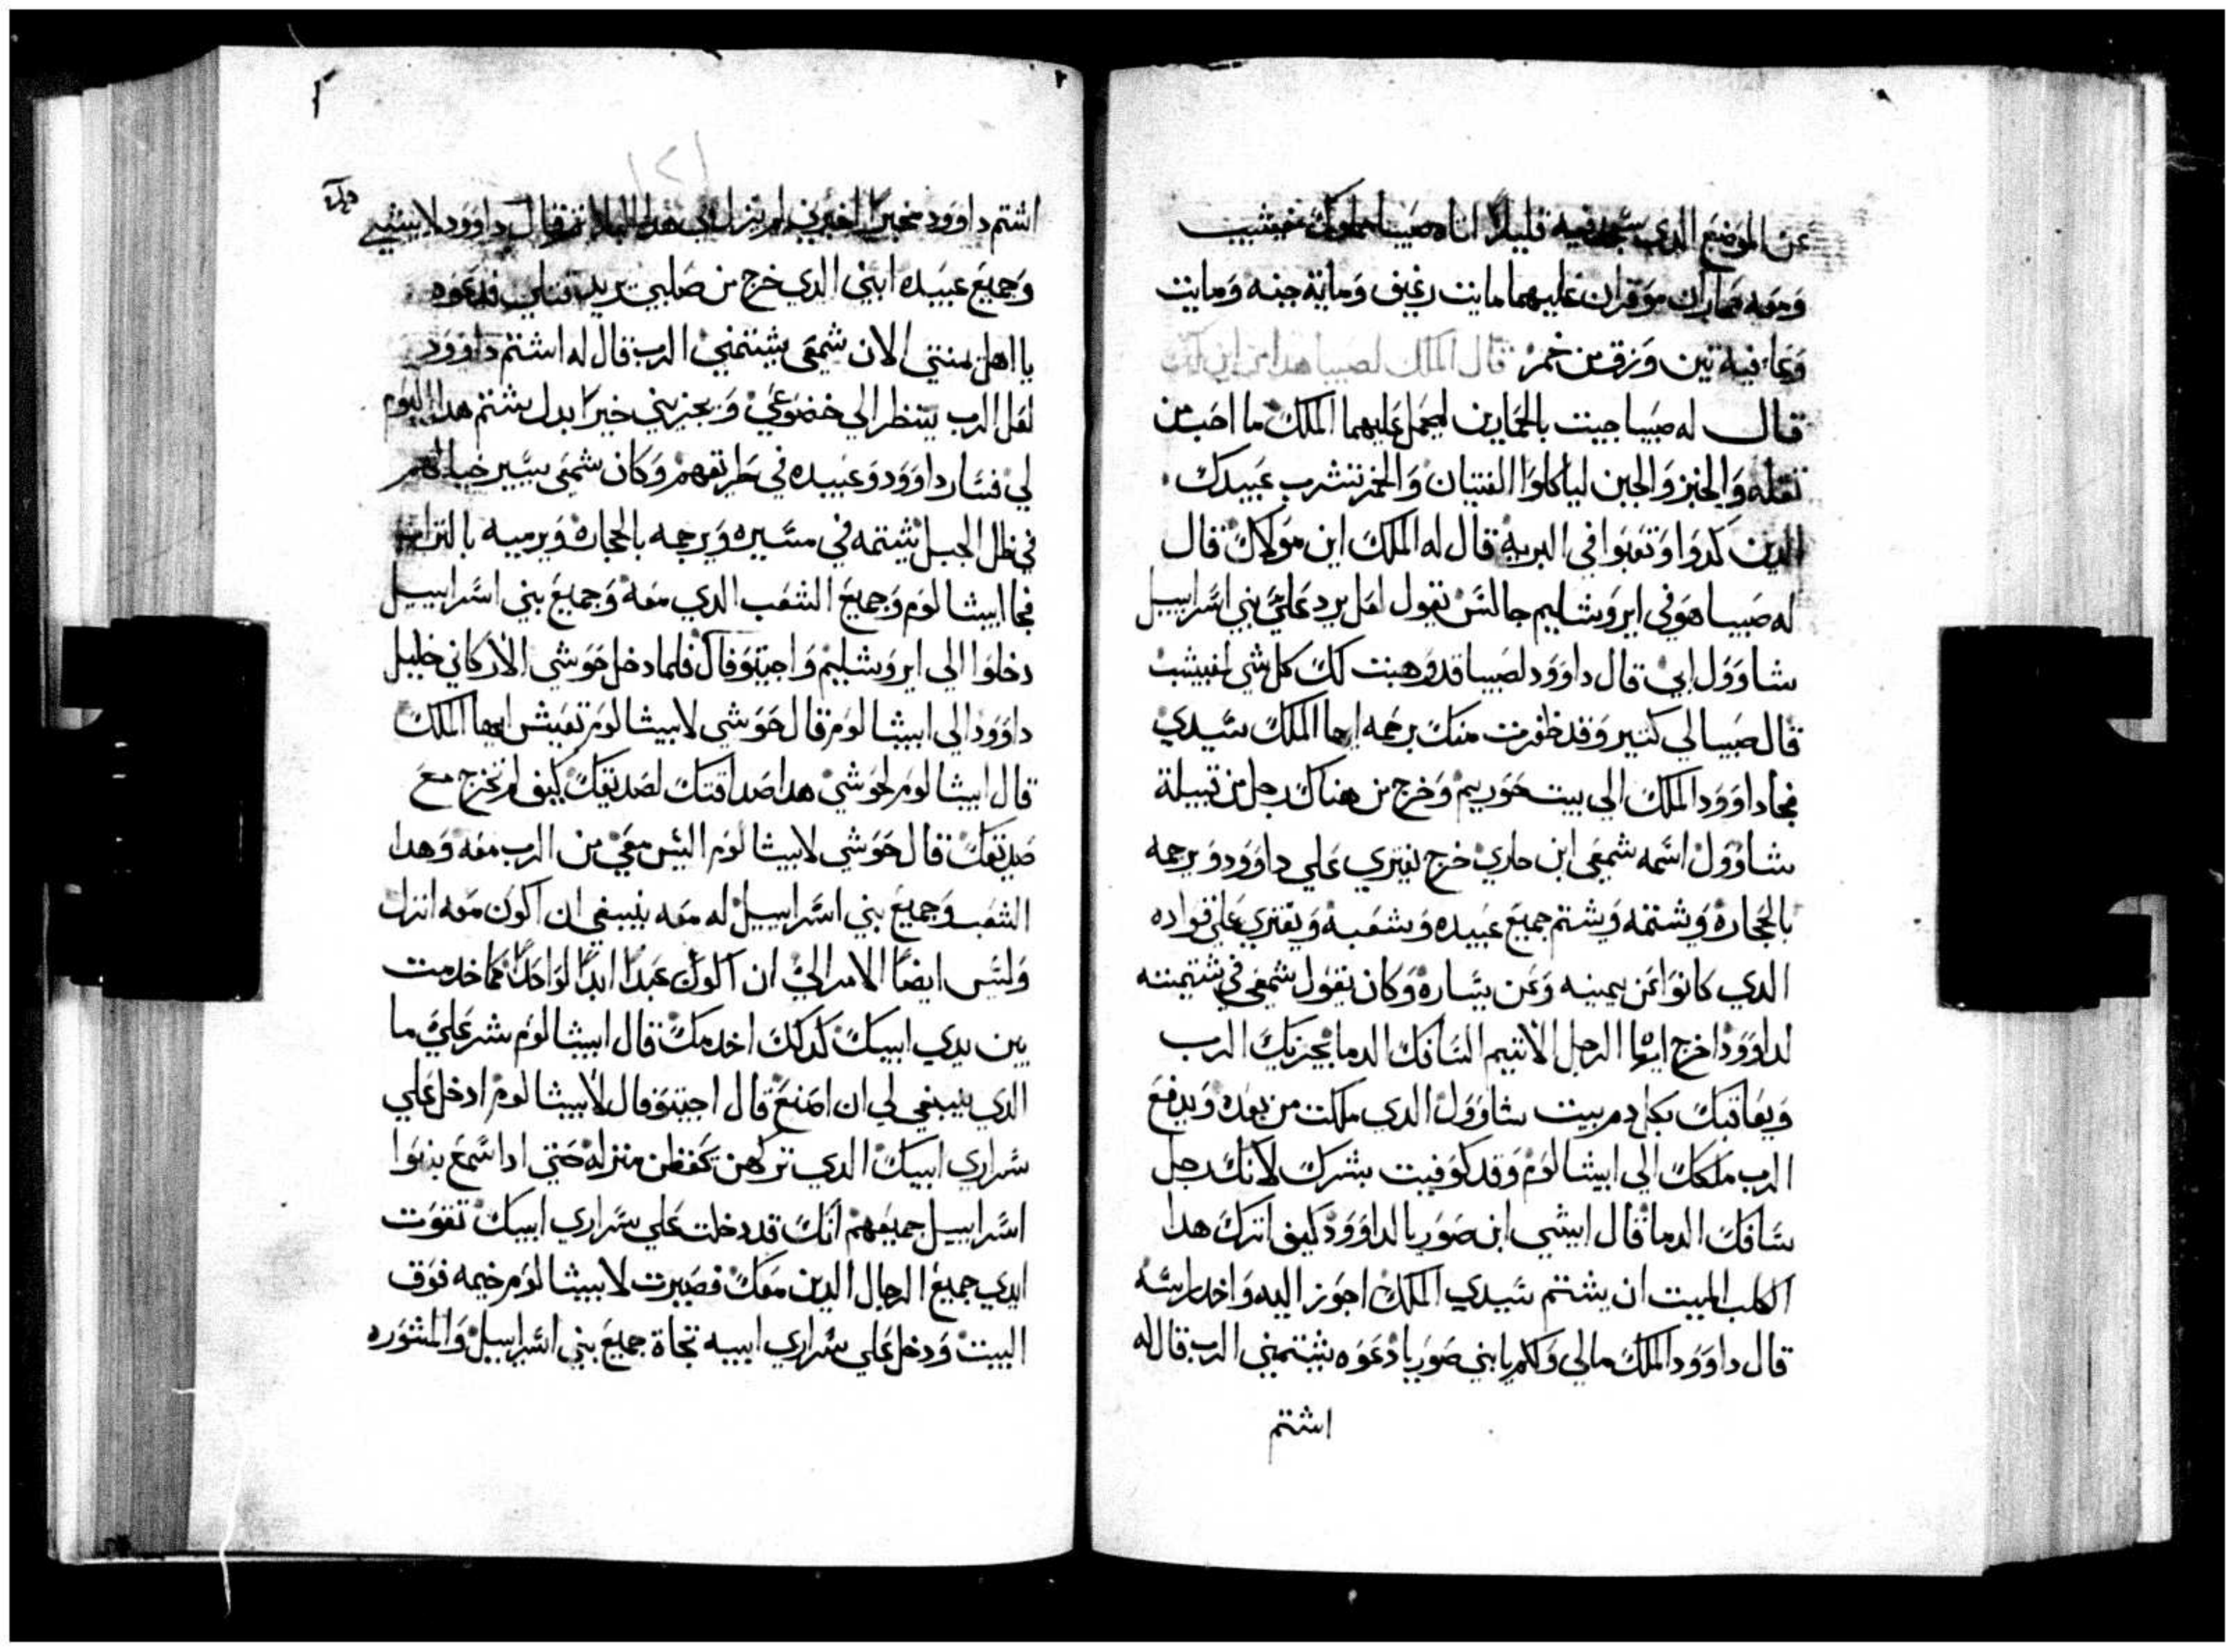 عن الموضع الدي سجد فيه قليلاً اتاه صيبا مملوك مفيبشيت
ومعه حماران موقران عليهما مايت رغيف وماية جبنه ومايت
وعا فيه تين وزق من خمر قال الملك لصيبا هدا
قال له صيبا جيت بالحمارين ليحمل عليهما الملك ما احب من
تقله والخبز والجبن لياكلوا الفتيان والخمر تشرب عبيدك
الدين كدوا وتعبوا في البريه قال له الملك اين مولاك قال
له صيبا هو في ايروشاليم جالس يقول لعل يرد علي بني اسراييل
شاوول ابي قال داوود لصيبا قد وهبت لك كل شي لمفيبشيت
قال صيبا لي كتير وقد ظفرت منك برحمه ايها الملك سيدي
فجا داوود الملك الي بيت حوريم وخرج من هناك رجل من قبيلة
شاوول اسمه شمعى ابن حاري خرج يفتري علي داوود ويرجمه
بالحجاره ويشتمه ويشتم جميع عبيده وشعبه ويفتري علي قواده
الدي كانوا عن يمينه وعن يساره وكان يقول شمعى في شتيمته
لداوود اخرج ايها الرجل الاتيم السافك الدما يجزيك الرب
ويعاقبك بكل دم بيت شاوول الدي ملكت من بعده ويدفع
الرب ملكك الي ابيشالوم وقد كوفيت بشرك لانك رجل
سافك الدما قال ابيشي ابن صوريا لداوود كيف اترك هدا
الكلب الميت ان يشتم سيدي الملك اجوز اليه واخد راسه
قال داوود الملك مالي ولكم يا بني صوريا دعوه يشتمني الرب قال له
اشتم
اشتم داوود قال داوود لابيشي
وجميع عبيده ابني الدي خرج من صلبي يريد قتلي فدعوه
يا اهل بيتي الان شمعى يشتمني الرب قال له اشتم داوود
لعل الرب ينظر الي خضوعي ويجزيني خيرا بدل شتم هدا اليوم
لي فسار داوود وعبيده في طريقهم وكان شمعى يسير حيالهم
في ظل الجبل يشتمه في مسيره ويرجمه بالحجاره ويرميه بالتراب
فجا ابيشالوم وجميع الشعب الدي معه وجميع بني اسراييل
دخلوا الي ايروشليم واحيتوفال فلما دخل حوشي الاركاني خليل
داوود الي ابيشالوم قال حوشي لابيشالوم تعيش ايها الملك
قال ابيشالوم لحوشي هدا صداقتك لصديقك كيف لم تخرج مع
صديقك قال حوشي لابيشالوم اليس معي من الرب معه وهدا
الشعب وجميع بني اسراييل له معه ينبغي ان اكون معه انزل
وليس ايضا الامر الي ان اكون عبدًا ابدًا لواحد كما خدمت
بين يدي ابيك كدلك اخدمك قال ابيشالوم شر علي ما
الدي ينبغي لي ان اصنع قال احيتوفال لابيشالوم ادخل علي
سراري ابيك الدي تركهن يحفظن منزله حتي ادا سمع بنوا
اسراييل جميعهم انك قد دخلت علي سراري ابيك تقوت
ايدي جميع الرجال الدين معك فصيرت لابيشالوم خيمه فوق
البيت ودخل علي سراري ابيه تجاة جميع بني اسراييل والمشوره